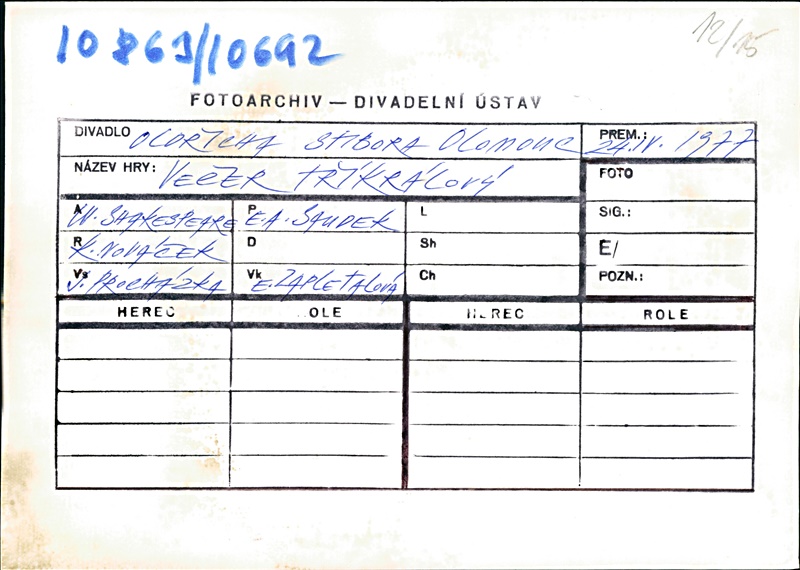 10 861/10692
12/15
FOTOARCHIV — DIVADELNÍ ÚSTAV
DIVADLO OLDŘICHA STIBORA OLOMOUC PREM.: 24.IV. 1977
NÁZEV HRY: VEČER TŘÍKRÁLOVÝ FOTO
A W. SHAKESPEARE P E.A. SAUDEK L SIG.:
R K. NOVÁČEK D Sh Ē/
Vs J. PROCHÁZKA Vk E. ZAPLETALOVÁ Ch POZN.:
HEREC OLE HEREC ROLE